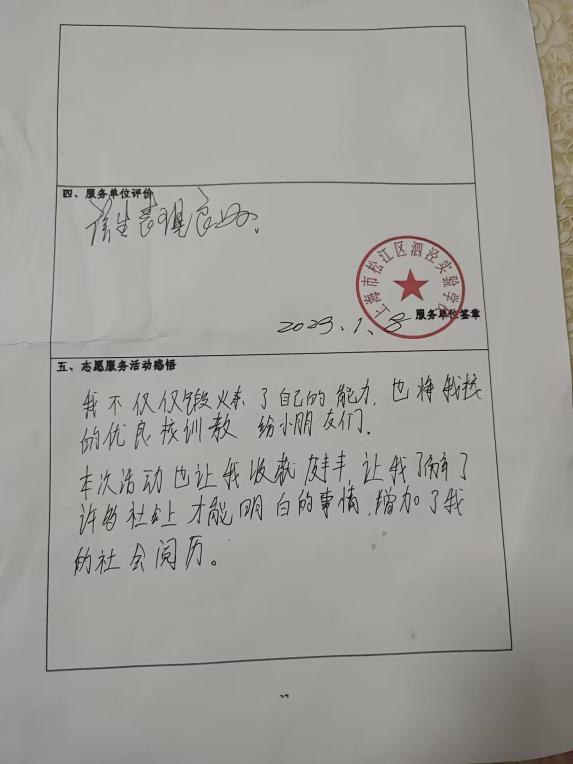 四、服务单位评价
该生表现良好。
上海市松江区泗泾实验学校
服务单位签章
2023.1.8
五、志愿服务活动感悟
我不仅仅锻炼了自己的能力,也将我校
的优良校训教给小朋友们。
本次活动也让我收获颇丰,让我了解了
许多社会上才能明白的事情,增加了我
的社会阅历。